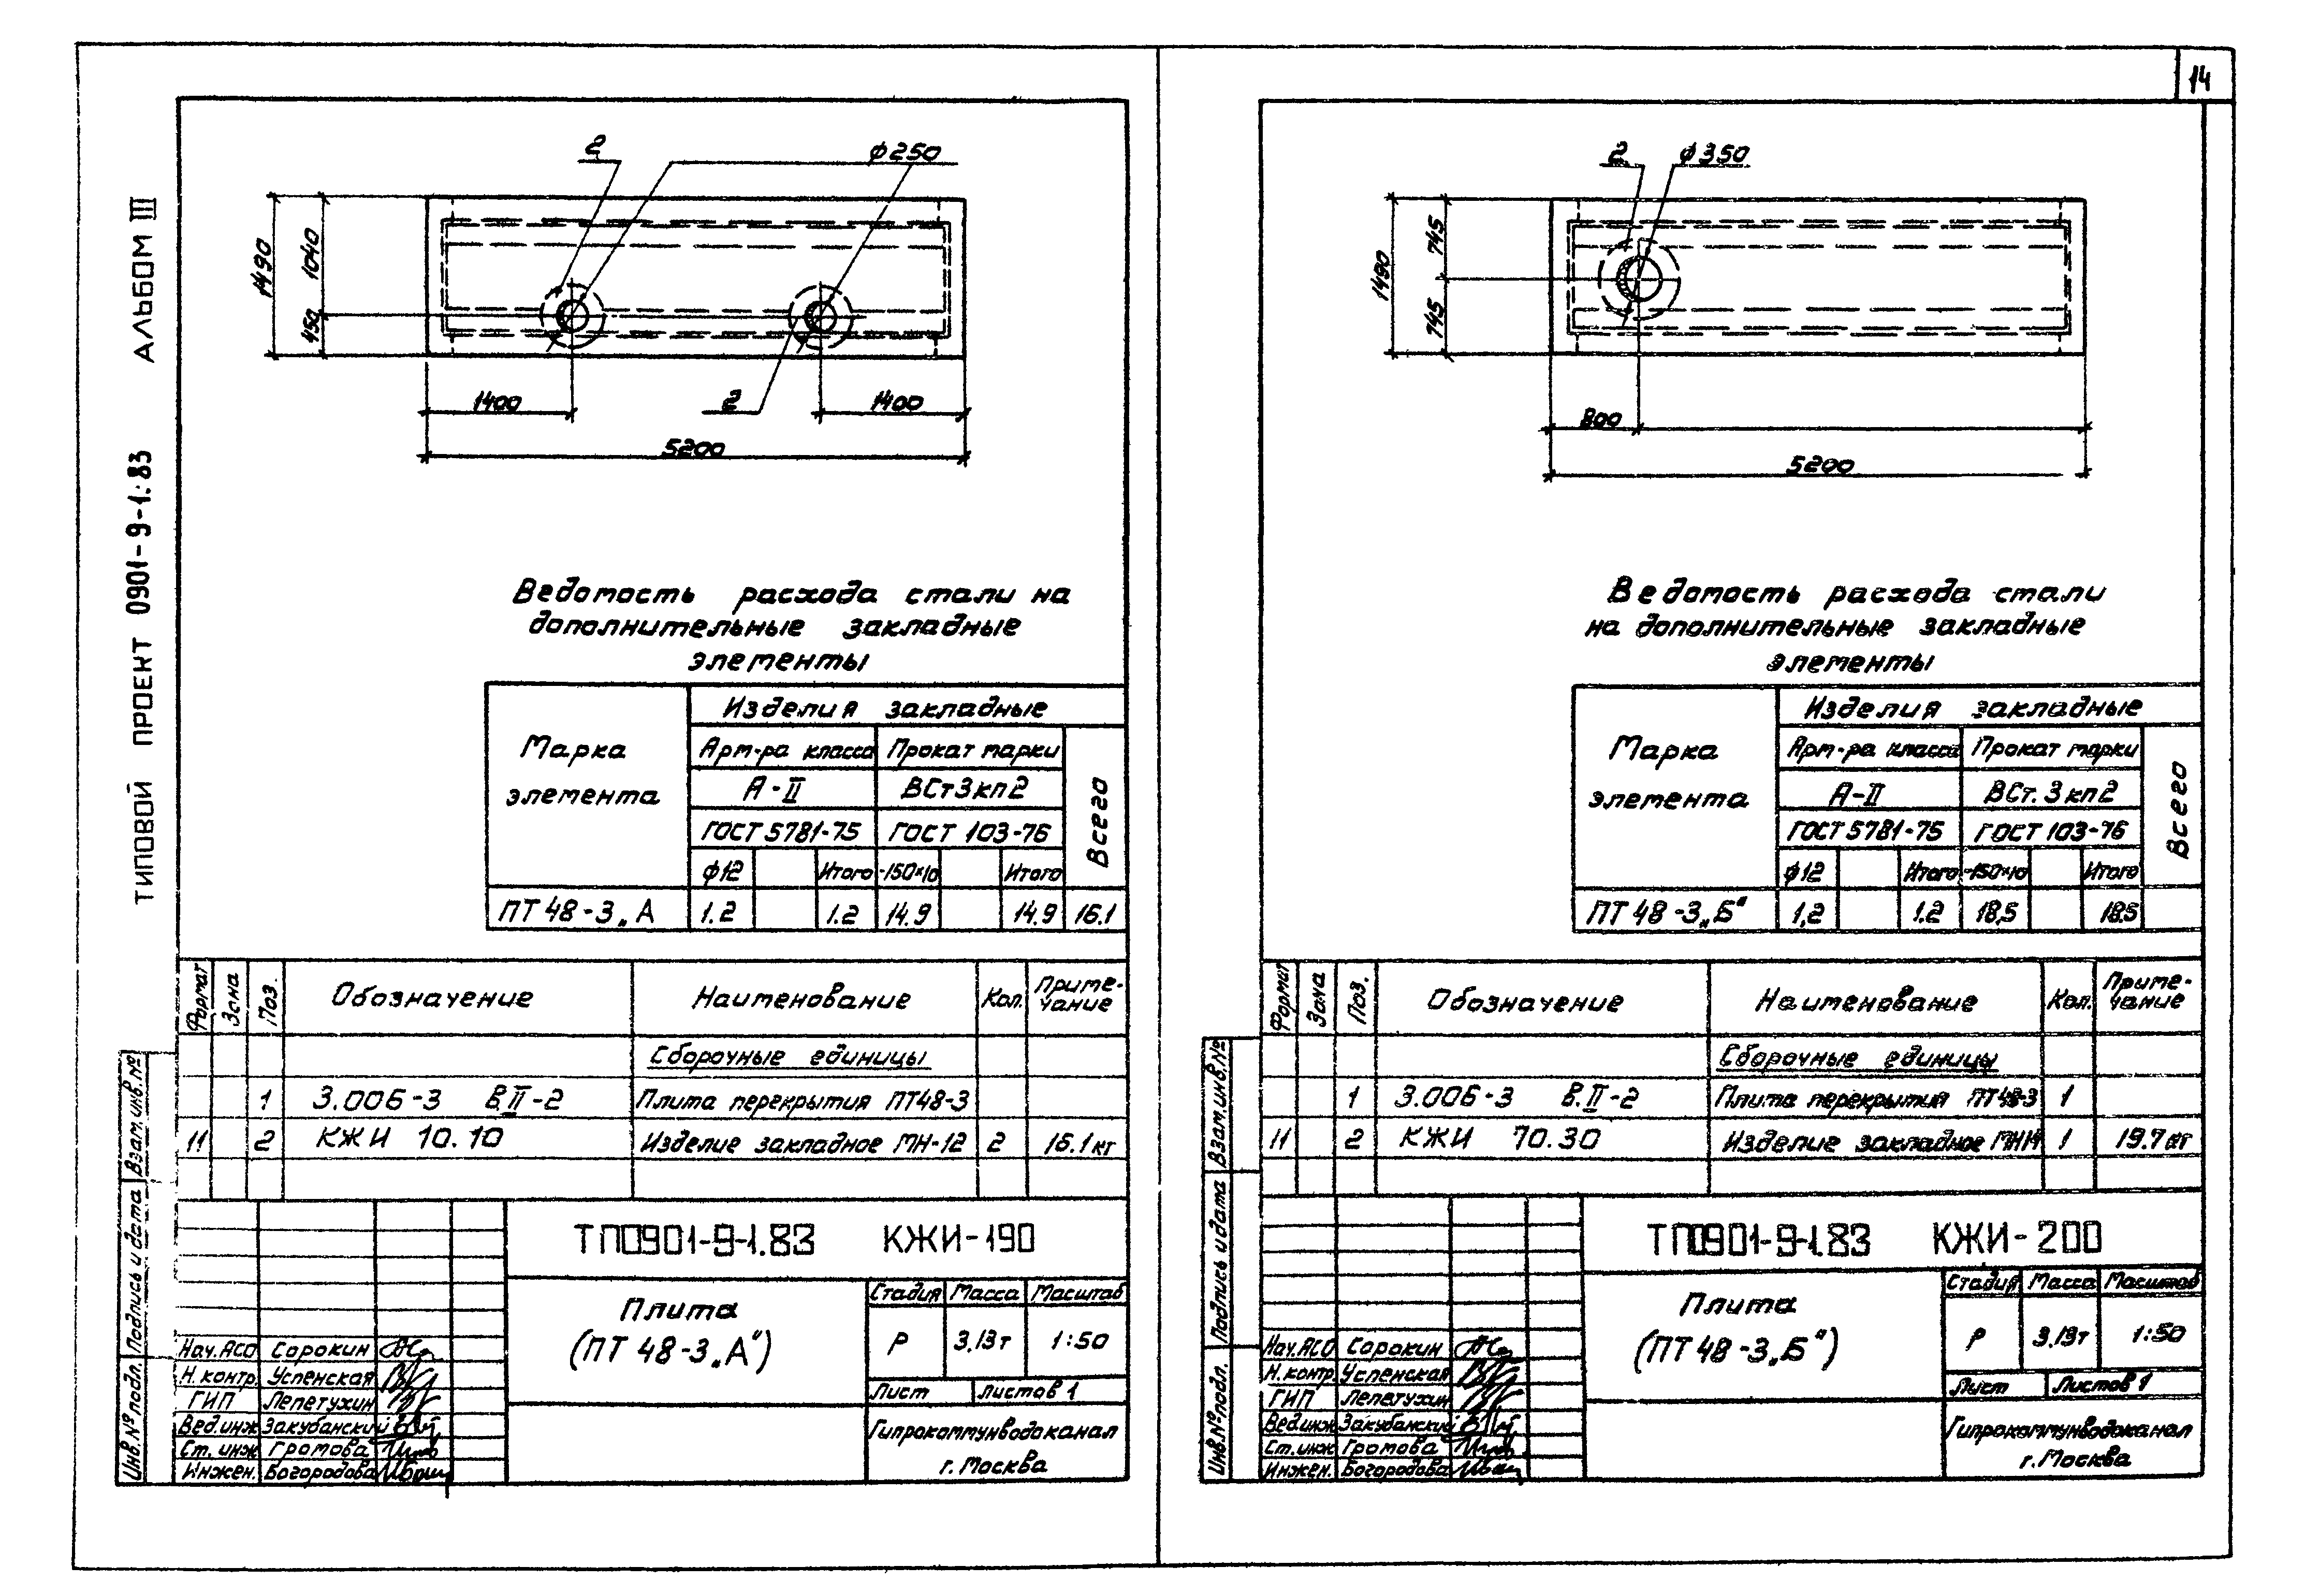 14
АЛЬБОМ III
ТИПОВОЙ ПРОЕКТ 0901-9-1.83
2
ϕ250
1490
1040
450
1400
2
1400
5200
Ведомость расхода стали на
дополнительные закладные
элементы
Марка
элемента
Изделия закладные
Арм-ра класса
Прокат марки
Всего
А-II
ВСт3кп2
ГОСТ 5781-75
ГОСТ 103-76
ϕ12
Итого
-150×10
Итого
ПТ 48-3„А
1.2
1.2
14.9
14.9
16.1
Формат
Зона
Поз.
Обозначение
Наименование
Кол.
Приме-
чание
Сборочные единицы
1
3.006-3 В.II-2
Плита перекрытия ПТ48-3
11
2
КЖИ 10.10
Изделие закладное МН-12
2
16.1кг
ТП0901-9-1.83 КЖИ-190
Плита
(ПТ 48-3„А“)
Стадия
Масса
Масштаб
Р
3,13т
1:50
Лист
Листов 1
Гипрокоммунводоканал
г. Москва
Нач.АСО Сорокин
Н. контр. Успенская
ГИП Лепетухин
Вед.инж Закубанский
Ст. инж Громова
Инжен. Богородова
Взам.инв.№
Подпись и дата
Инв.№ подл.
2
ϕ350
1490
745
745
800
5200
Ведомость расхода стали
на дополнительные закладные
элементы
Марка
элемента
Изделия закладные
Арм-ра класса
Прокат марки
Всего
А-II
ВСт.3кп2
ГОСТ 5781-75
ГОСТ 103-76
ϕ12
Итого
-150×10
Итого
ПТ 48-3„Б“
1,2
1.2
18,5
18.5
Формат
Зона
Поз.
Обозначение
Наименование
Кол.
Приме-
чание
Сборочные единицы
1
3.006-3 В.II-2
Плита перекрытия ПТ48-3
1
11
2
КЖИ 70.30
Изделие закладное МН14
1
19.7кг
ТП0901-9-1.83 КЖИ-200
Плита
(ПТ 48-3„Б“)
Стадия
Масса
Масштаб
Р
3,13т
1:50
Лист
Листов 1
Гипрокоммунводоканал
г. Москва
Нач.АСО Сорокин
Н. контр. Успенская
ГИП Лепетухин
Вед.инж Закубанский
Ст. инж Громова
Инжен. Богородова
Взам.инв.№
Подпись и дата
Инв.№ подл.